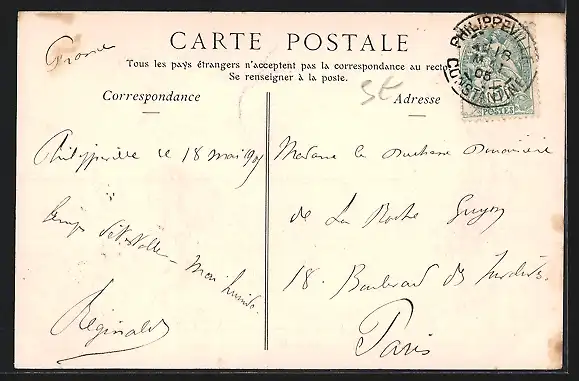 France
CARTE POSTALE
Tous les pays étrangers n'acceptent pas la correspondance au recto
Se renseigner à la poste.
Correspondance
Adresse
PHILIPPEVILLE
18
MAI
CONSTANTINE
POSTES
Philippeville le 18 mai
temps
Reginald
Madame la Duchesse Douairière
de La Roche Guyon
18. Boulevard des Invalides.
Paris